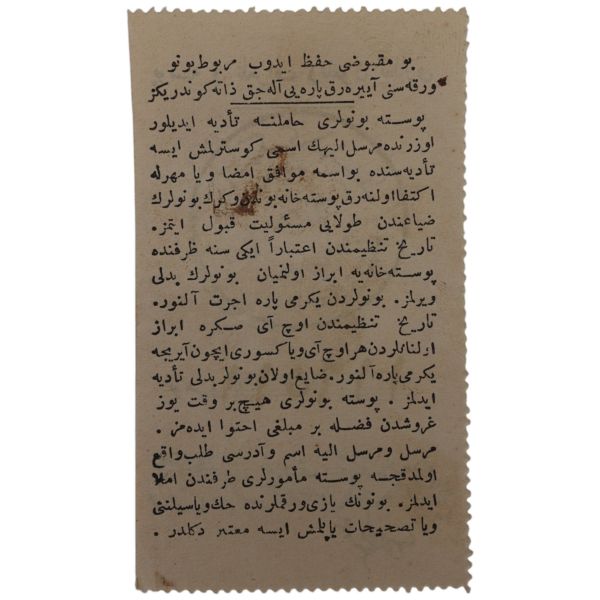 بو مقبوضی حفظ ایدوب مربوط بونو
ورقه‌سنی آییره‌رق پاره‌یی آله‌جق ذاته كوندریكز
پوسته بونولری حاملنه تأدیه ایدیلور
اوزرنده مرسل الیهك اسمی كوسترلمش ایسه
تأدیه‌سنده بو اسمه موافق امضا ویا مهرله
اكتفا اولنه‌رق پوسته‌خانه بوندن وكرك بونولرك
ضیاعندن طولایی مسئولیت قبول ایتمز.
تاریخ تنظیمندن اعتباراً ایكی سنه ظرفنده
پوسته‌خانه‌یه ابراز اولنمیان بونولرك بدلی
ویرلمز. بونولردن یكرمی پاره اجرت آلنور.
تاریخ تنظیمندن اوچ آی صكره ابراز
اولنانلردن هر اوچ آی ویا كسوری ایچون آیریجه
یكرمی پاره آلنور. ضایع اولان بونولر بدلی تأدیه
ایدلمز. پوسته بونولری هیچ بر وقت یوز
غروشدن فضله بر مبلغی احتوا ایده‌مز.
مرسل ومرسل الیه اسم وآدرسی طلب واقع
اولمدقجه پوسته مأمورلری طرفندن املا
ایدلمز. بونونك یازی ورقملرنده حك ویا سیلنتی
ویا تصحیحات یاپلمش ایسه معتبر دكلدر.